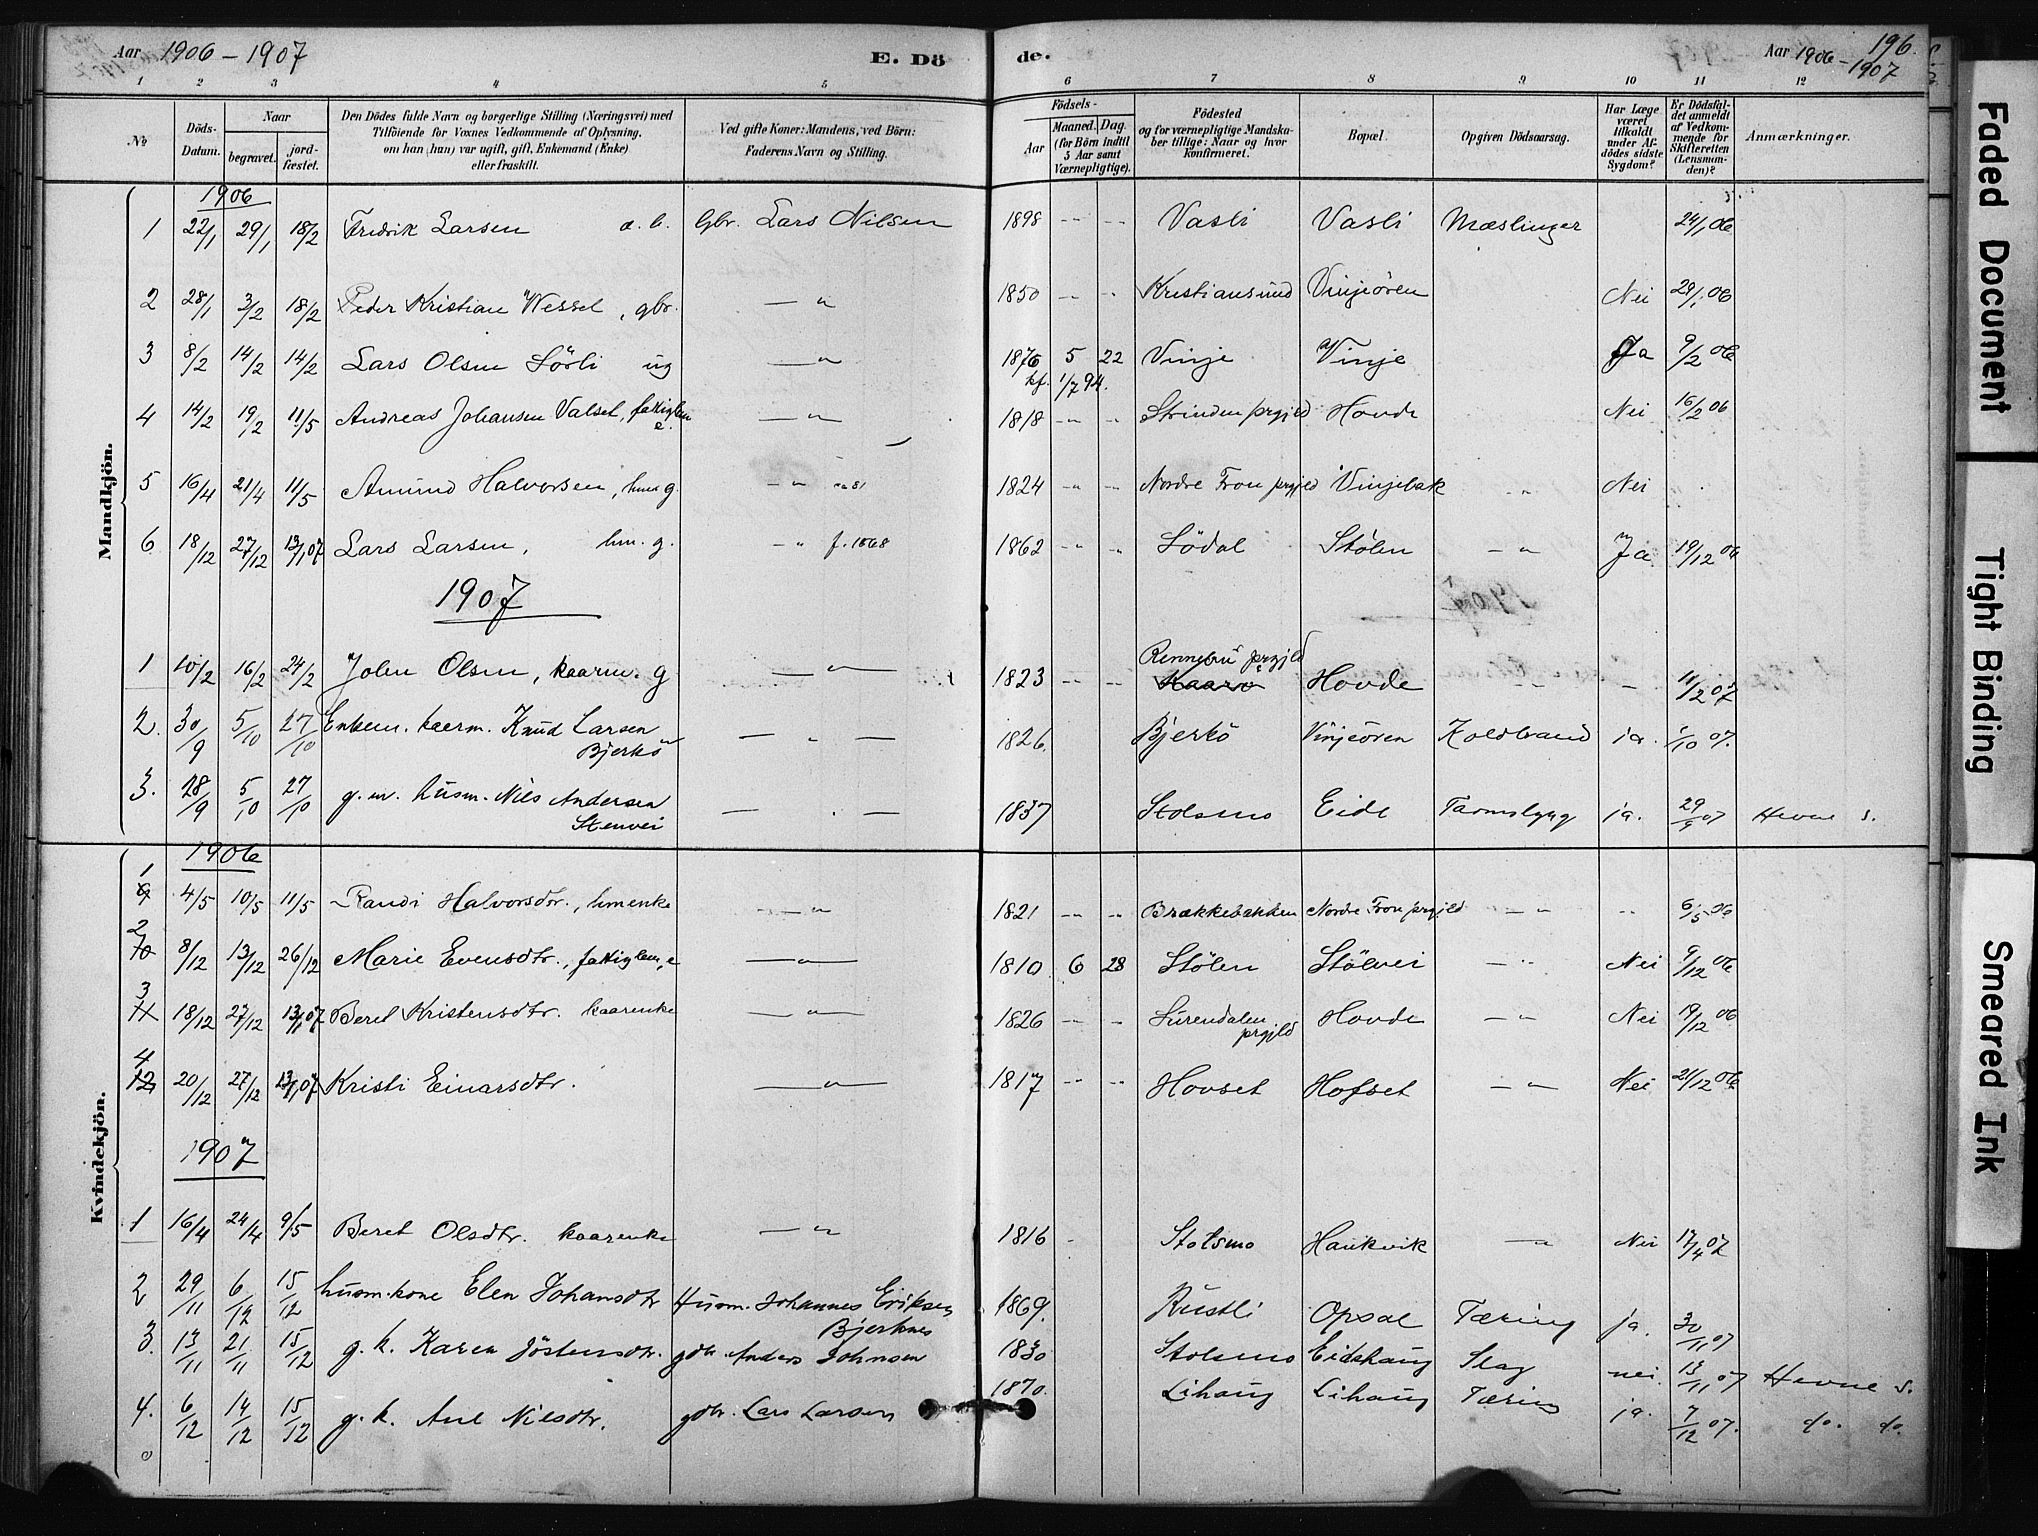 Aar 1906 - 1907 E. Dö de. Aar 1906 - 1907 196.
1 2 3 4 5 6 7 8 9 10 11 12
No Döds-Datum. Naar begravet. jord-fæstet. Den Dödes fulde Navn og borgerlige Stilling (Næringsvei) med Tilföiende for Voxnes Vedkommende af Oplysning, om han (hun) var ugift, gift, Enkemand (Enke) eller fraskilt. Ved gifte Koner: Mandens, ved Börn: Faderens Navn og Stilling. Födsels- Aar Maaned. Dag. (for Börn indtil 5 Aar samt Værnepligtige). Födested og for værnepligtige Mandskaber tillige: Naar og hvor Konfirmeret. Bopæl. Opgiven Dödsaarsag. Har Læge været tilkaldt under Afdödes sidste Sygdom? Er Dödsfaldet anmeldt af Vedkommende for Skifteretten (Lensmanden)? Anmærkninger.
Mandkjön.
1906
1 22/1 29/1 18/2 Fredrik Larsen a. b. Gbr. Lars Nilsen 1898 -- -- Vasli Vasli Mæslinger 24/1 06
2 28/1 3/2 18/2 Peder Kristian Wessel, gbr. — " 1850 -- -- Kristiansund Vinjeören Nei 29/1 06
3 8/2 14/2 14/2 Lars Olsen Sörli ug — " 1876 5 22 Vinje Vinje Ja 9/2 06
kf. 1/7 94.
4 14/2 19/2 11/5 Andreas Johansen Valset, fattiglem e. — " — 1818 -- -- Strinden prgjld Hovde Nei 16/2 06
5 16/4 21/4 11/5 Amund Halvorsen, hm g. — " 1824 -- -- Nordre Fron prgjld Vinjebak " Nei
6 18/12 27/12 13/1 07 Lars Larsen, hm. g. — " f. 1868 1862 -- -- Södal Stölen — " Ja 19/12 06
1907
1 10/2 16/2 24/2 John Olsen, kaarm. g — " — 1823 -- -- Rennebu prgjld Hovde — 11/2 07
2. 30/9 5/10 27/10 Enkem. kaarm. Knud Larsen Bjerkö — " — 1826. Bjerkö Vinjeören Koldbrand ja. 1/10 07.
3. 28/9 5/10 27/10 g. m. husm. Nils Andersen Stenvei — " — 1837 Stolsmo Eide Tarmslyng ja. 29/9 07 Hevne s.
Kvindekjön.
1906
1 4/5 10/5 11/5 Randi Halvorsdtr., hmenke — " 1821 -- -- Brækkebakken Nordre Fron prgjld — " -- 6/5 06
2 8/12 13/12 26/12 Marie Evensdtr., fattiglem, e — " — 1810 6 28 Stölen Stölvei — " Nei 9/12 06
3 18/12 27/12 13/1 07 Beret Kristensdtr. kaarenke — " — 1826 -- -- Surendalen prgjld Hovde — " Nei 19/12 06
4 20/12 27/12 13/1 07 Kristi Einarsdtr. — " — 1817 -- -- Hovset Hofset — " Nei 21/12 06
1907
1 16/4 24/4 9/5 Beret Olsdtr. kaarenke — " 1816 - Stolsmo Haukvik — " Nei 17/4 07
2 29/11 6/12 15/12 husm.kone Elen Johansdtr Husm. Johannes Eriksen Bjerknes 1869. Rustli Opsal Tæring ja. 30/11 07
3. 13/11 21/11 15/12 g. k. Karen Jöstensdtr. gdbr. Anders Johnsen 1830 Stolsmo Eidshaug Slag nei. 13/11 07 Hevne s.
4. 6/12 14/12 15/12 g. k. Ane Nilsdtr. gdbr. Lars Larsen 1870. Lihaug Lihaug Tæring ja. 7/12 07. do. do.
Faded Document
Tight Binding
Smeared Ink